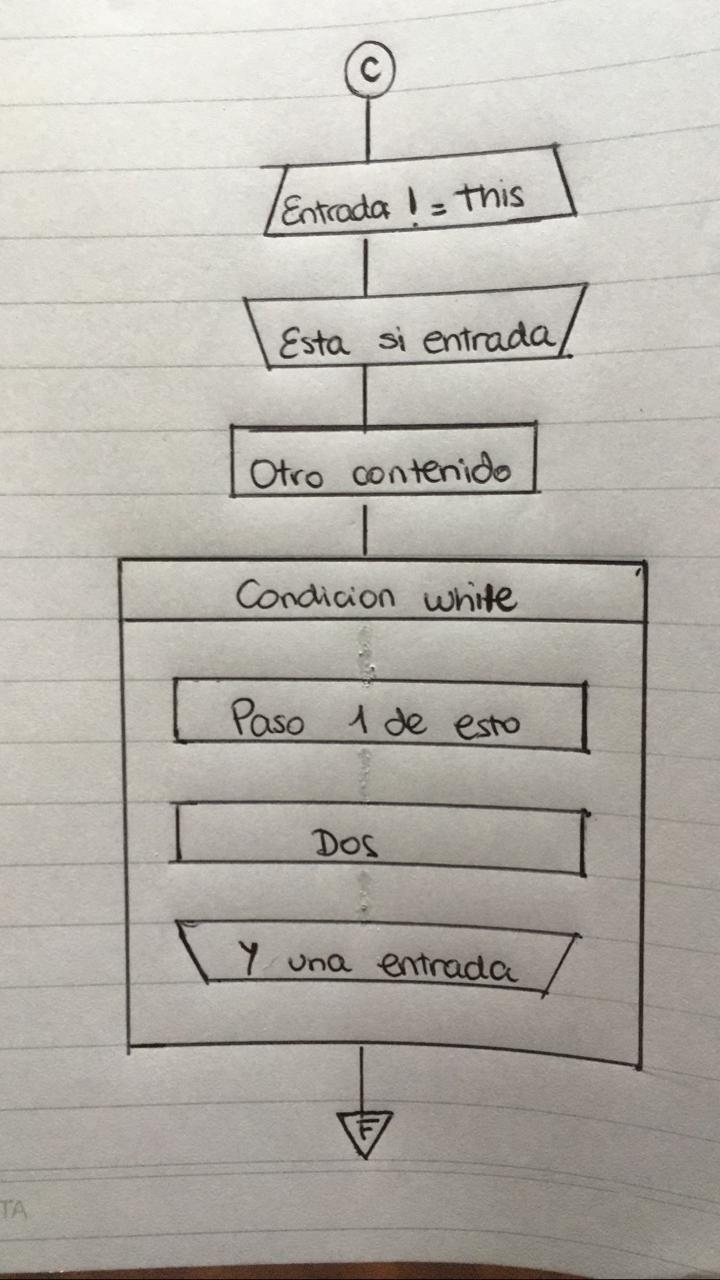 C
Entrada != this
Esta si entrada
Otro contenido
Condicion white
Paso 1 de esto
Dos
Y una entrada
F
TA